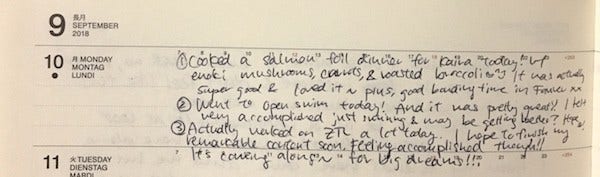 9 長月
SEPTEMBER
2018
10 月 MONDAY
MONTAG
LUNDI
① Cooked a salmon foil dinner for today! w/
enoki mushrooms, carrots, & roasted broccoli It was actually
super good & loved it ~ plus, good bonding time in
② Went to open swim today! And it was pretty great! I felt
very accomplished just & may be getting better?
③ Actually worked on ZTL a lot today. I hope to finish my
remarkable content soon. Feeling accomplished though!!
It's coming along ~ for big dreams!!!
11 火 TUESDAY
DIENSTAG
MARDI